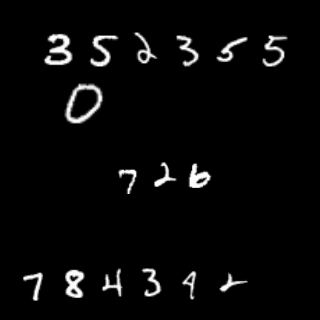 352355
0
726
784342